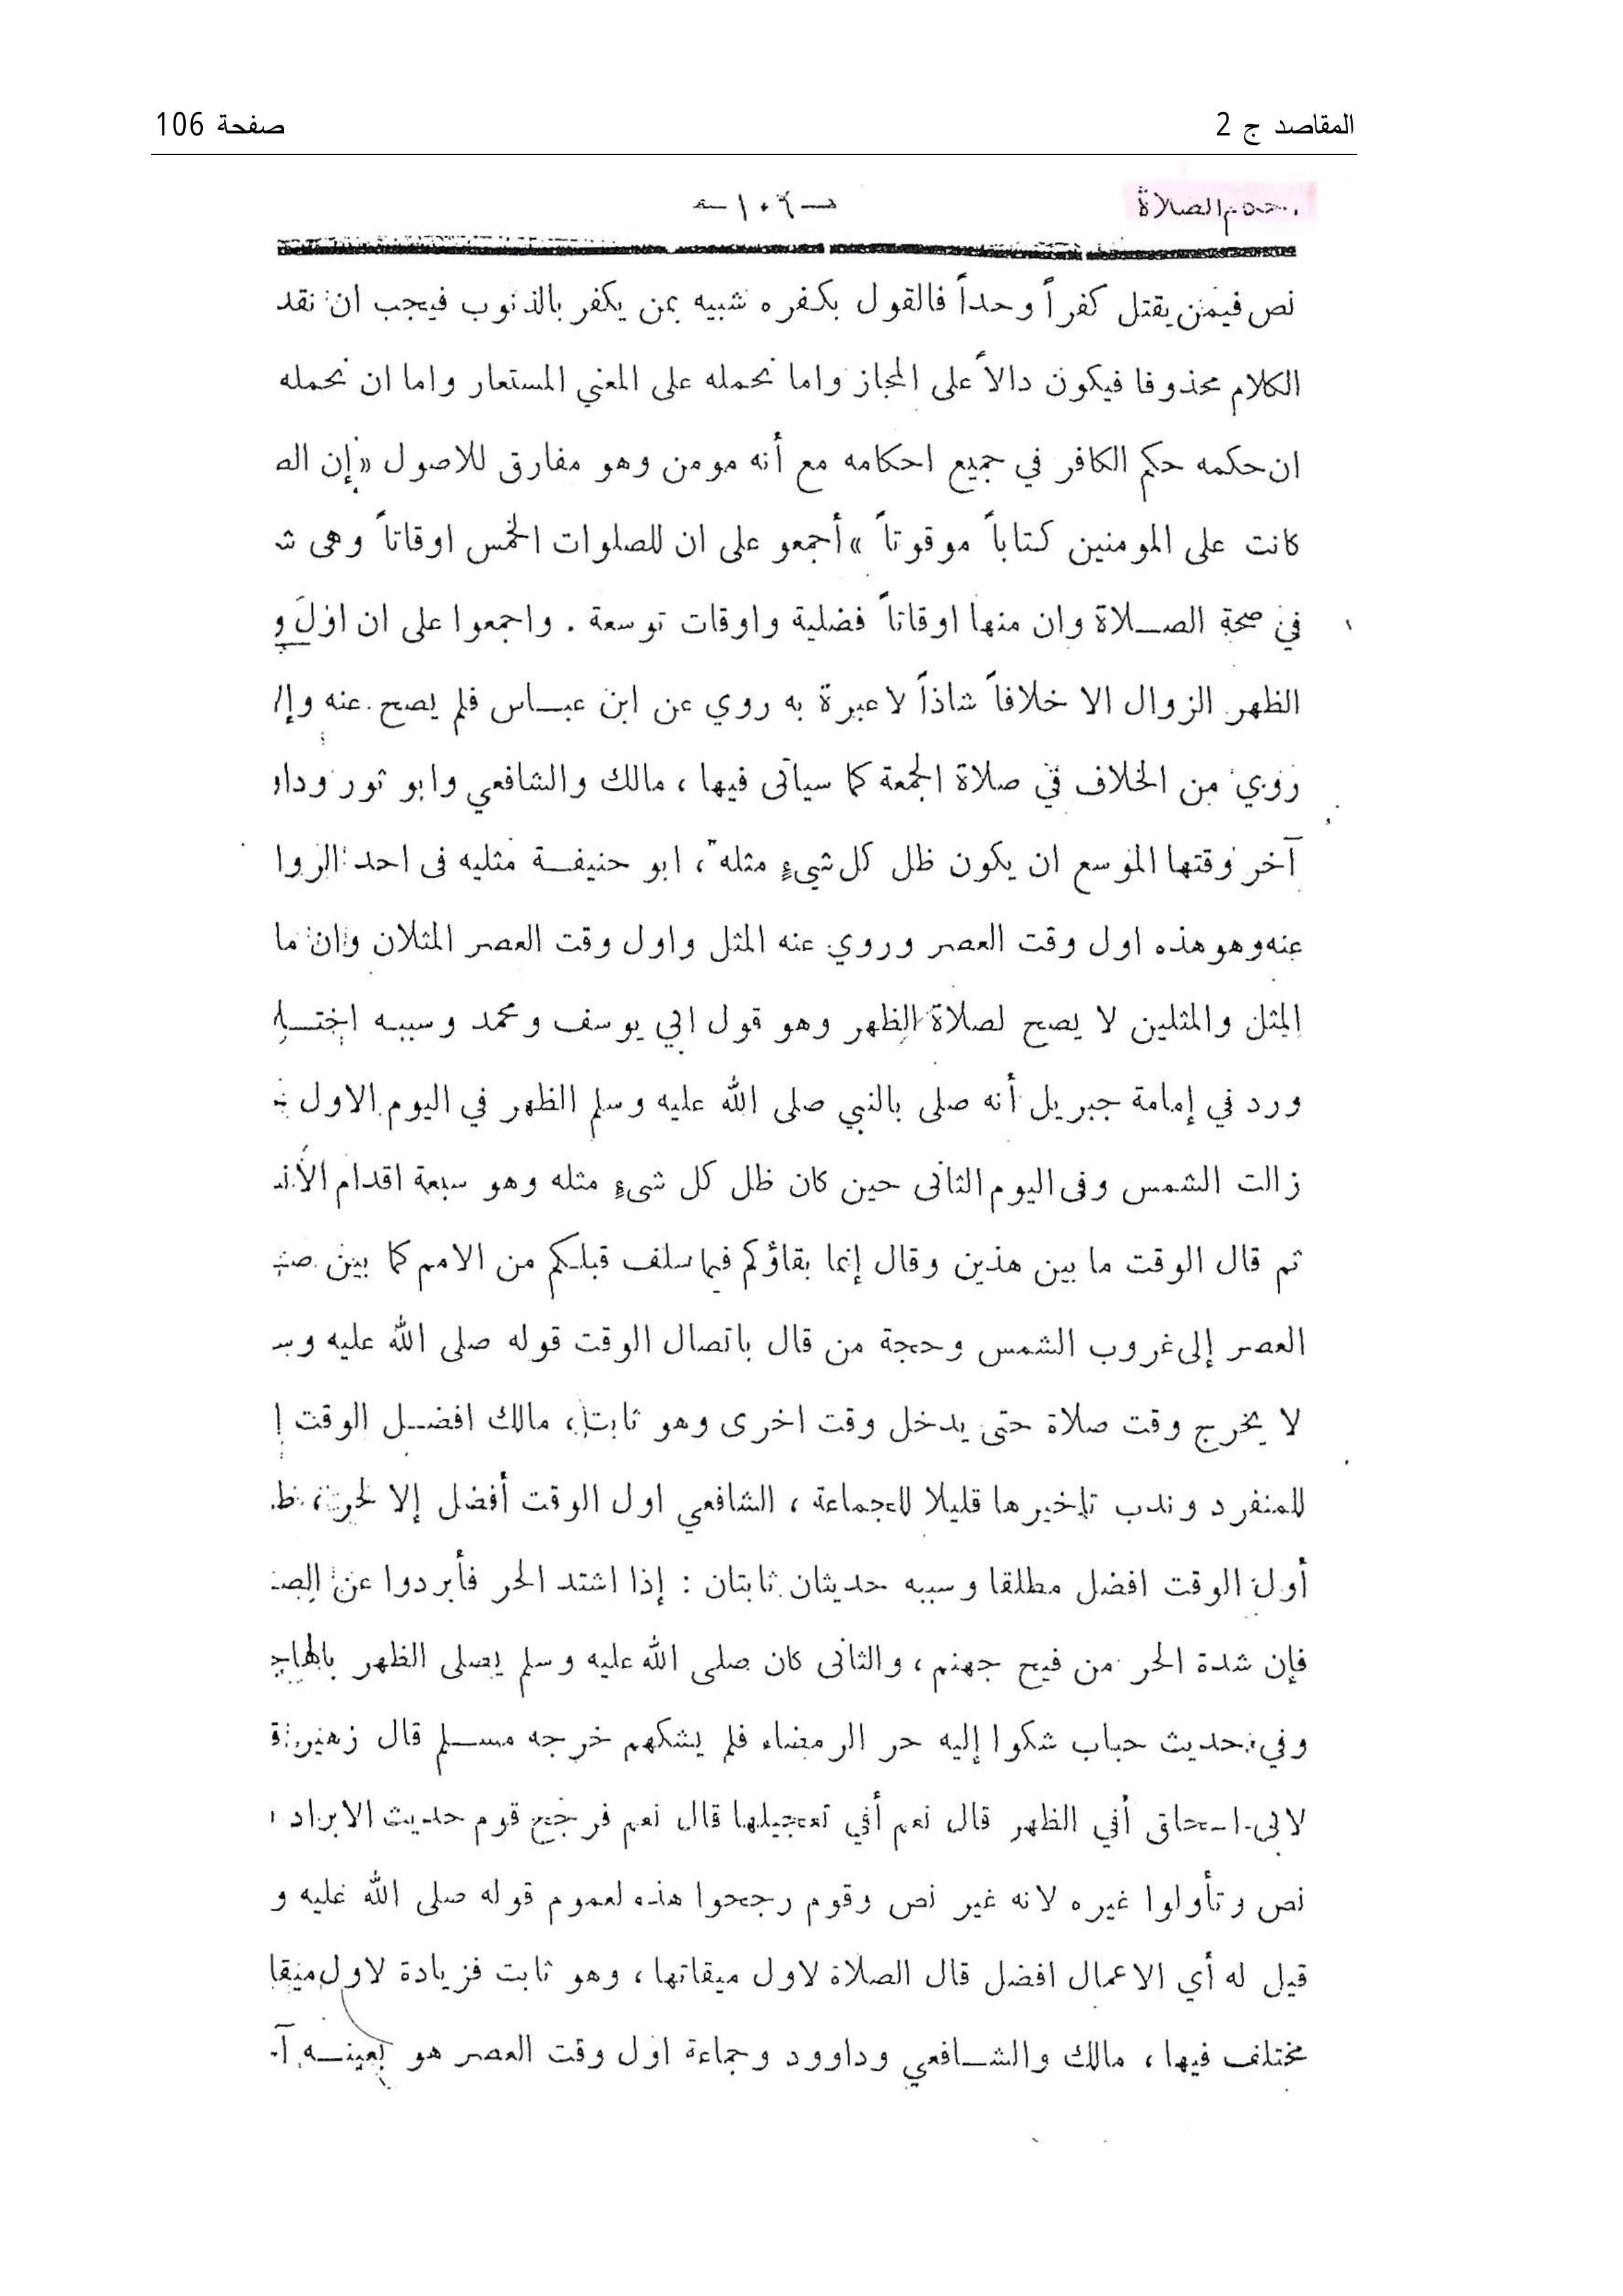 المقاصد ج 2
صفحة 106
حكم الصلاة
— ١٠٦ —
نص فيمن يقتل كفراً وحداً فالقول بكفره شبيه بمن يكفر بالذنوب فيجب ان نقد
الكلام محذوفا فيكون دالاً على المجاز واما نحمله على المعنى المستعار واما ان نحمله
ان حكمه حكم الكافر في جميع احكامه مع أنه مومن وهو مفارق للاصول «إن الص
كانت على المومنين كتاباً موقوتاً» أجمعو على ان للصلوات الخمس اوقاتاً وهى ش
في صحة الصـلاة وان منها اوقاتاً فضلية واوقات توسعة . واجمعوا على ان اول و
الظهر الزوال الا خلافاً شاذاً لا عبرة به روي عن ابن عبـاس فلم يصح عنه وإلا
روي من الخلاف في صلاة الجمعة كما سياتى فيها ، مالك والشافعي وابو ثور وداو
آخر وقتها الموسع ان يكون ظل كل شيءٍ مثله ، ابو حنيفـة مثليه فى احد الروا
عنه وهو هذه اول وقت العصر وروي عنه المثل واول وقت العصر المثلان وان ما
المثل والمثلين لا يصح لصلاة الظهر وهو قول ابي يوسف ومحمد وسببه اختـلا
ورد في إمامة جبريل أنه صلى بالنبي صلى الله عليه وسلم الظهر في اليوم الاول
زالت الشمس وفى اليوم الثانى حين كان ظل كل شىءٍ مثله وهو سبعة اقدام
ثم قال الوقت ما بين هذين وقال إنما بقاؤكم فيما سلف قبلكم من الامم كما بين
العصر إلى غروب الشمس وحجة من قال باتصال الوقت قوله صلى الله عليه وسـ
لا يخرج وقت صلاة حتى يدخل وقت اخرى وهو ثابت ، مالك افضـل الوقت
للمنفرد وندب تاخيرها قليلا للجماعة ، الشافعي اول الوقت أفضل إلا لحر ،
أول الوقت افضل مطلقا وسببه حديثان ثابتان : إذا اشتد الحر فأبردوا عن الصـ
فإن شدة الحر من فيح جهنم ، والثانى كان صلى الله عليه وسلم يصلى الظهر بالهاجـ
وفي حديث حباب شكوا إليه حر الرمضاء فلم يشكهم خرجه مسـلم قال زهير ق
لابى اسحاق أفي الظهر قال نعم أفي تعجيلها قال نعم فرجح قوم حديث الابراد
نص وتأولوا غيره لانه غير نص وقوم رجحوا هذه لعموم قوله صلى الله عليه و
قيل له أي الاعمال افضل قال الصلاة لاول ميقاتها ، وهو ثابت فزيادة لاول ميقا
مختلف فيها ، مالك والشـافعي وداوود وجماعة اول وقت العصر هو بعينـه آ